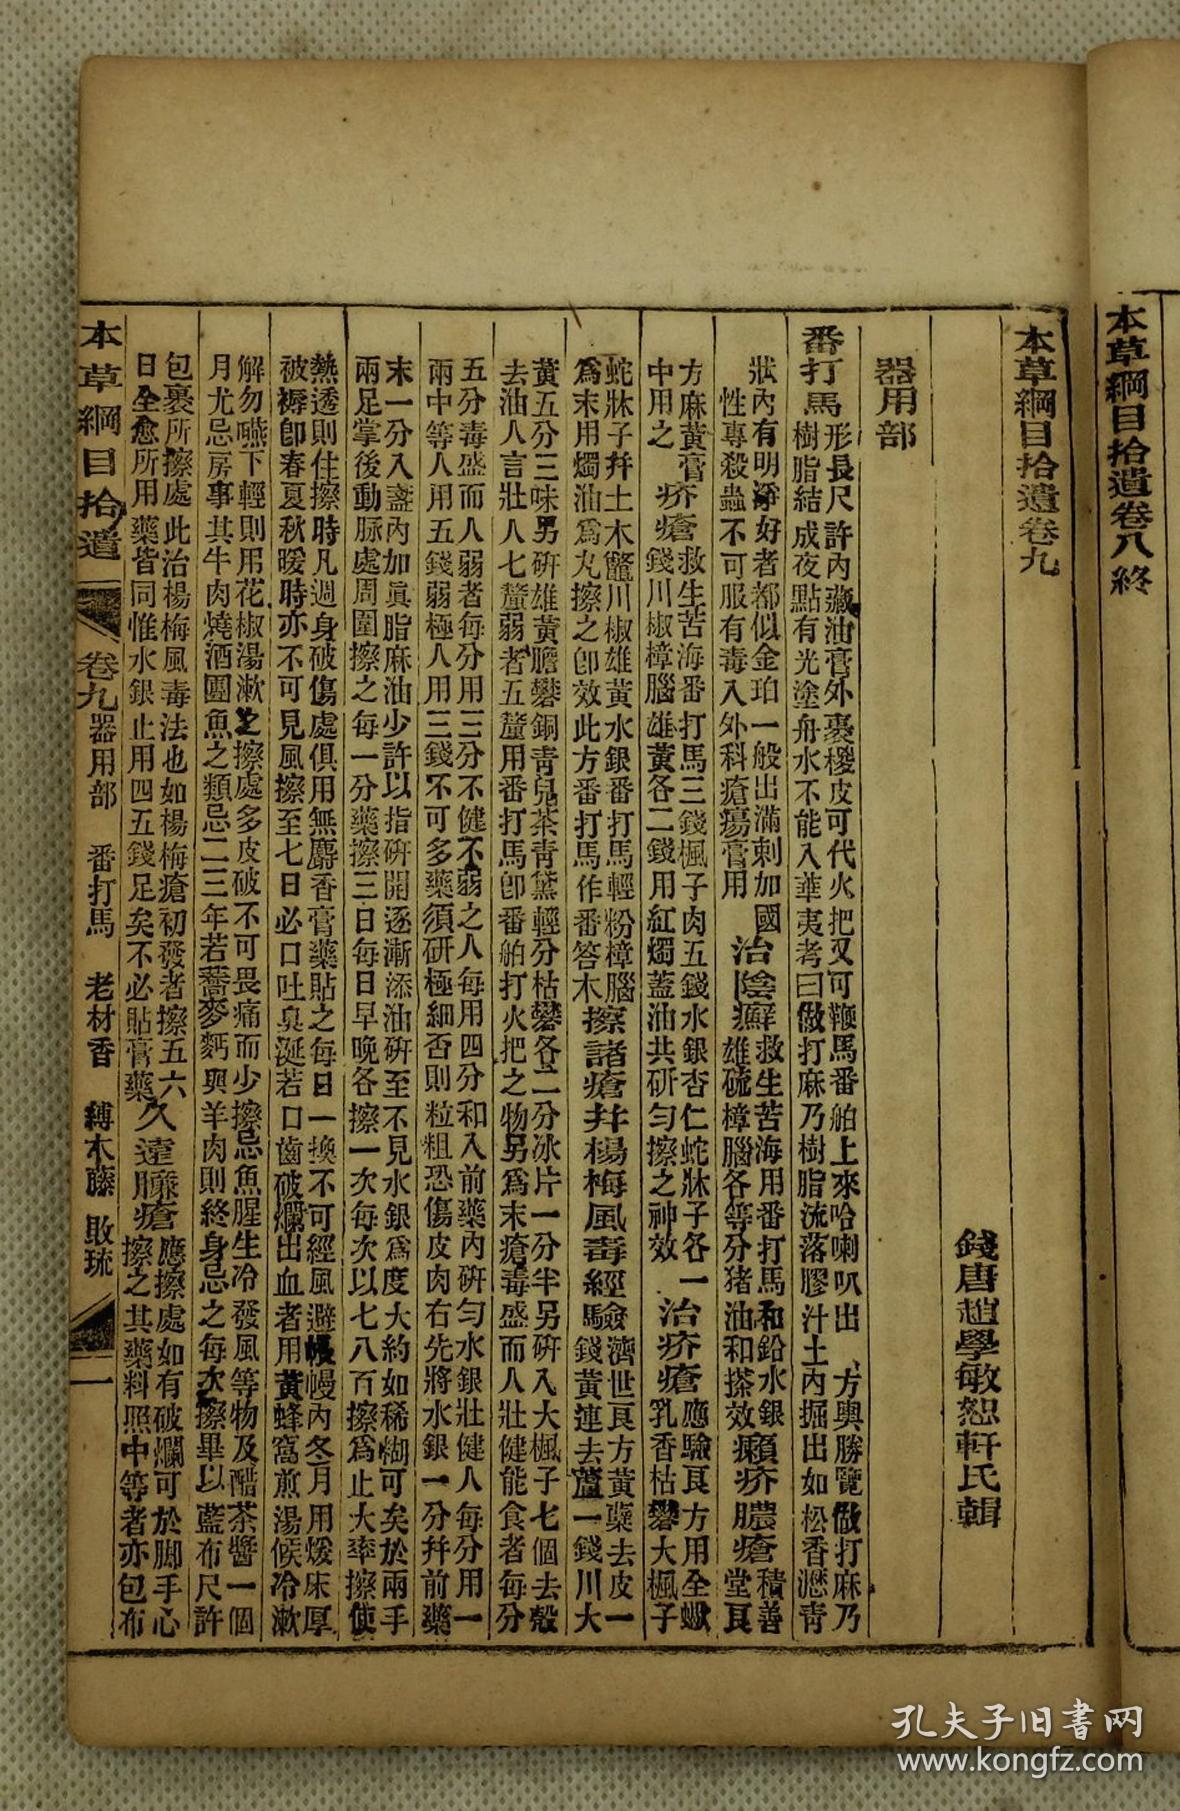 本草綱目拾遺卷八終
本草綱目拾遺卷九
錢唐趙學敏恕軒氏輯
器用部
番打馬
形長尺許內藏油膏外裹椶皮可代火把又可鞭馬番舶上來哈喇叭出 方輿勝覽做打麻乃
樹脂結成夜點有光塗舟水不能入華夷考曰做打麻乃樹脂流落膠汁土內掘出如松香瀝青
狀內有明淨好者都似金珀一般出滿剌加國
性專殺蟲不可服有毒入外科瘡瘍膏用
治陰癬
救生苦海用番打馬和鉛水銀
雄硫樟腦各等分猪油和搽效
癩疥膿瘡
積善
堂良
方麻黃膏
中用之
疥瘡
救生苦海番打馬三錢楓子肉五錢水銀杏仁蛇牀子各一
錢川椒樟腦雄黃各二錢用紅燭蓋油共研勻擦之神效
治疥瘡
應驗良方用全蠍
乳香枯礬大楓子
蛇牀子幷土木鼈川椒雄黃水銀番打馬輕粉樟腦
爲末用燭油爲丸擦之卽效此方番打馬作番答木
擦諸瘡幷楊梅風毒經驗
濟世良方黃蘗去皮一
錢黃連去蘆一錢川大
黃五分三味另硏雄黃膽礬銅青兒茶青黛輕分枯礬各二分冰片一分半另硏入大楓子七個去殼
去油人言壯人七釐弱者五釐用番打馬卽番舶打火把之物另爲末瘡毒盛而人壯健能食者每分
五分毒盛而人弱者每分用三分不健不弱之人每用四分和入前藥內硏勻水銀壯健人每分用一
兩中等人用五錢弱極人用三錢不可多藥須研極細否則粒粗恐傷皮肉右先將水銀一分幷前藥
末一分入盞內加眞脂麻油少許以指硏開逐漸添油硏至不見水銀爲度大約如稀糊可矣於兩手
兩足掌後動脈處周圍擦之每一分藥擦三日每日早晚各擦一次每次以七八百擦爲止大率擦使
熱透則住擦時凡週身破傷處俱用無麝香膏藥貼之每日一換不可經風避帳幔內冬月用煖床厚
被褥卽春夏秋暖時亦不可見風擦至七日必口吐臭涎若口齒破爛出血者用黃蜂窩煎湯候冷漱
解勿嚥下輕則用花椒湯漱之擦處多皮破不可畏痛而少擦忌魚腥生冷發風等物及醋茶醬一個
月尤忌房事其牛肉燒酒團魚之類忌二三年若蕎麥麪與羊肉則終身忌之每次擦畢以藍布尺許
包裹所擦處此治楊梅風毒法也如楊梅瘡初發者擦五六
日全愈所用藥皆同惟水銀止用四五錢足矣不必貼膏藥
久遠臁瘡
應擦處如有破爛可於脚手心
擦之其藥料照中等者亦包布
本草綱目拾遺 卷九 器用部 番打馬 老材香 縛木藤 敗琉 一
孔夫子旧書网
www.kongfz.com